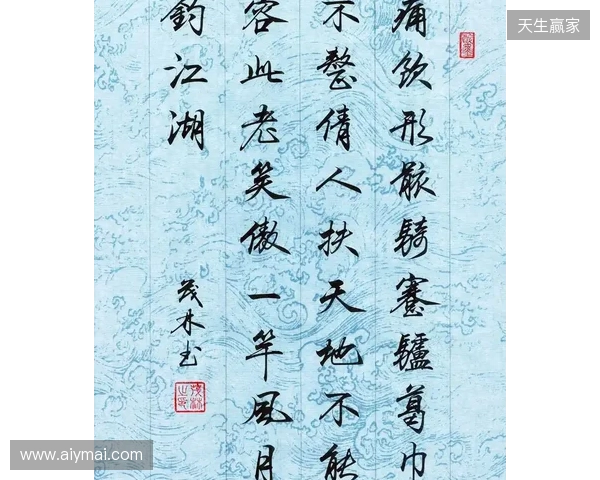 天生赢家
痛饮形骸騎蹇驢葛巾
不整倩人扶天地不能
容此老笑傲一竿风月
釣江湖
茂林书
www.aiymai.com